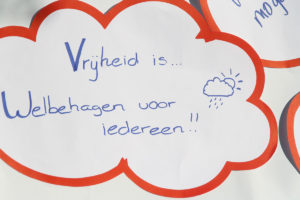 Vrijheid is...
Welbehagen voor
iedereen!!